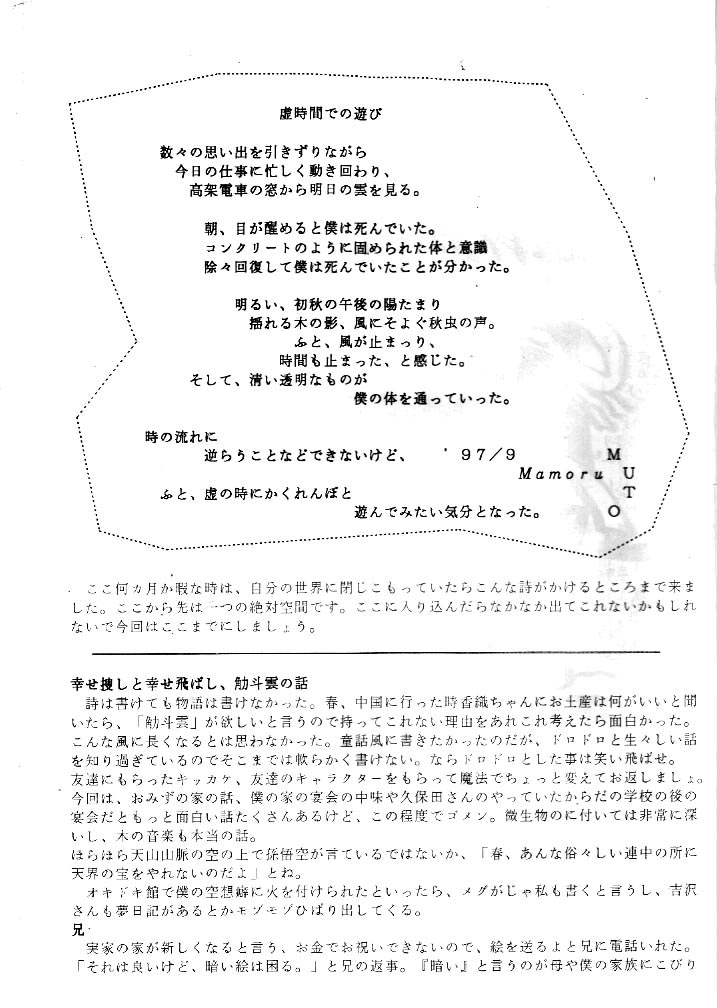 虚時間での遊び
数々の思い出を引きずりながら
今日の仕事に忙しく動き回わり、
高架電車の窓から明日の雲を見る。
朝、目が醒めると僕は死んでいた。
コンクリートのように固められた体と意識
除々回復して僕は死んでいたことが分かった。
明るい、初秋の午後の陽たまり
揺れる木の影、風にそよぐ秋虫の声。
ふと、風が止まっり、
時間も止まった、と感じた。
そして、清い透明なものが
僕の体を通っていった。
時の流れに
逆らうことなどできないけど、 '97/9
Mamoru MUTO
ふと、虚の時にかくれんぼと
遊んでみたい気分となった。
ここ何カ月か暇な時は、自分の世界に閉じこもっていたらこんな詩がかけるところまで来ま
した。ここから先は一つの絶対空間です。ここに入り込んだらなかなか出てこれないかもしれ
ないで今回はここまでにしましょう。
幸せ捜しと幸せ飛ばし、觔斗雲の話
詩は書けても物語は書けなかった。春、中国に行った時香織ちゃんにお土産は何がいいと聞
いたら、「觔斗雲」が欲しいと言うので持ってこれない理由をあれこれ考えたら面白かった。
こんな風に長くなるとは思わなかった。童話風に書きたかったのだが、ドロドロと生々しい話
を知り過ぎているのでそこまでは軟らかく書けない。ならドロドロとした事は笑い飛ばせ。
友達にもらったキッカケ、友達のキャラクターをもらって魔法でちょっと変えてお返しましょ。
今回は、おみずの家の話、僕の家の宴会の中味や久保田さんのやっていたからだの学校の後の
宴会だともっと面白い話たくさんあるけど、この程度でゴメン。微生物のに付いては非常に深
いし、木の音楽も本当の話。
ほらほら天山山脈の空の上で孫悟空が言ているではないか、「春、あんな俗々しい連中の所に
天界の宝をやれないのだよ」とね。
オキドキ館で僕の空想癖に火を付けられたといったら、メグがじゃ私も書くと言うし、吉沢
さんも夢日記があるとかモゾモゾひぱり出してくる。
兄
実家の家が新しくなると言う、お金でお祝いできないので、絵を送るよと兄に電話いれた。
「それは良いけど、暗い絵は困る。」と兄の返事。『暗い』と言うのが母や僕の家族にこびり